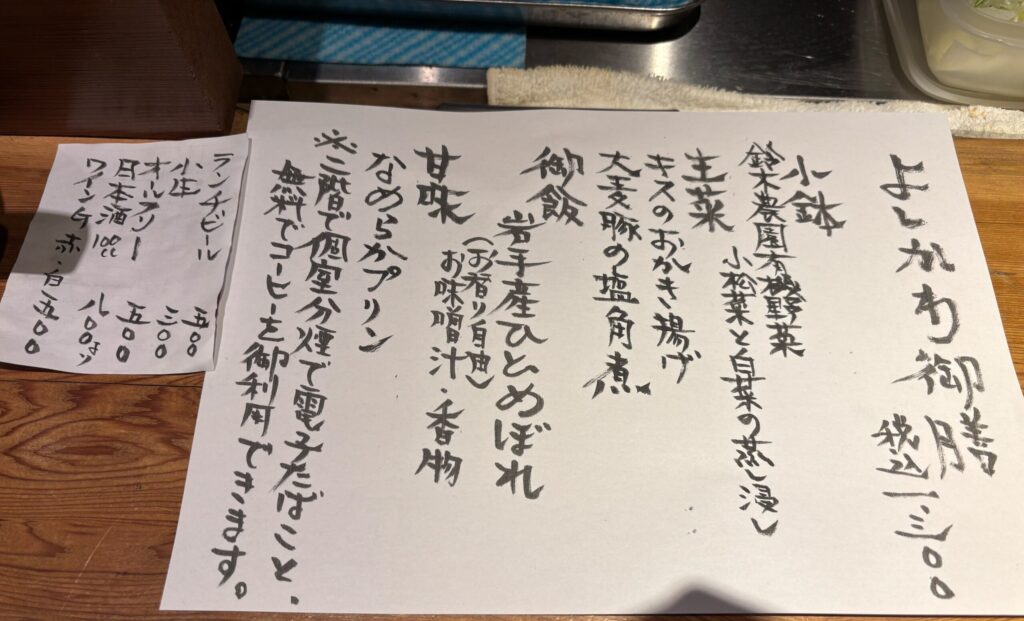 よしかわ御膳
税込一三〇〇
小鉢
鈴木農園有機野菜
小松菜と白菜の蒸し浸し
主菜
キスのおかき揚げ
大麦豚の塩角煮
御飯
岩手産ひとめぼれ
(お替り自由)
お味噌汁・香物
甘味
なめらかプリン
※二階で個室分煙で電子たばこと、
無料でコーヒーを御利用できます。
ランチビール 五〇〇
小生 三〇〇
オールフリー 五〇〇
日本酒100cc 八〇〇より
ワインG 赤・白 五〇〇